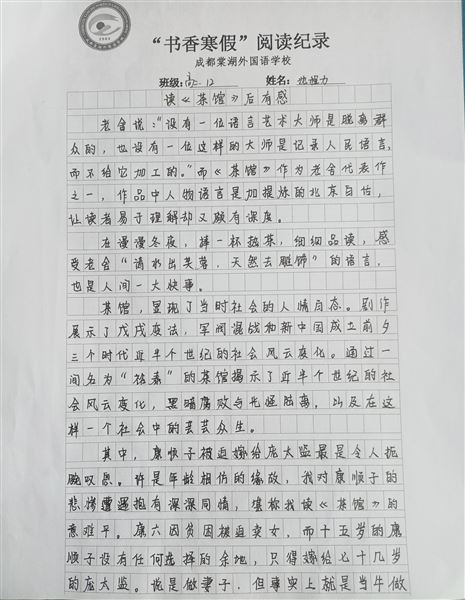 “书香寒假”阅读纪录
成都棠湖外国语学校
班级:高二.12 姓名:
读《茶馆》后有感
老舍说:“没有一位语言艺术大师是脱离群
众的，也没有一位这样的大师是记录人民语言，
而不给它加工的。”而《茶馆》作为老舍代表作
之一，作品中人物语言是加提炼的北京白话，
让读者易于理解却又颇有深度。
在漫漫冬夜，捧一杯热茶，细细品读，感
受老舍“清水出芙蓉，天然去雕饰”的语言，
也是人间一大快事。
茶馆，显现了当时社会的人情百态。剧作
展示了戊戌变法，军阀混战和新中国成立前夕
三个时代近半个世纪的社会风云变化。通过一
间名为“裕泰”的茶馆揭示了近半个世纪的社
会风云变化，黑暗腐败与光怪陆离，以及在这
样一个社会中的芸芸众生。
其中，康顺子被迫嫁给庞太监最是令人扼
腕叹息。许是年龄相仿的缘故，我对康顺子的
悲惨遭遇抱有深深同情，堪称我读《茶馆》的
意难平。康六因贫困被迫卖女，而十五岁的康
顺子没有任何选择的余地，只得嫁给七十几岁
的庞太监。说是做妻子，但事实上就是当牛做